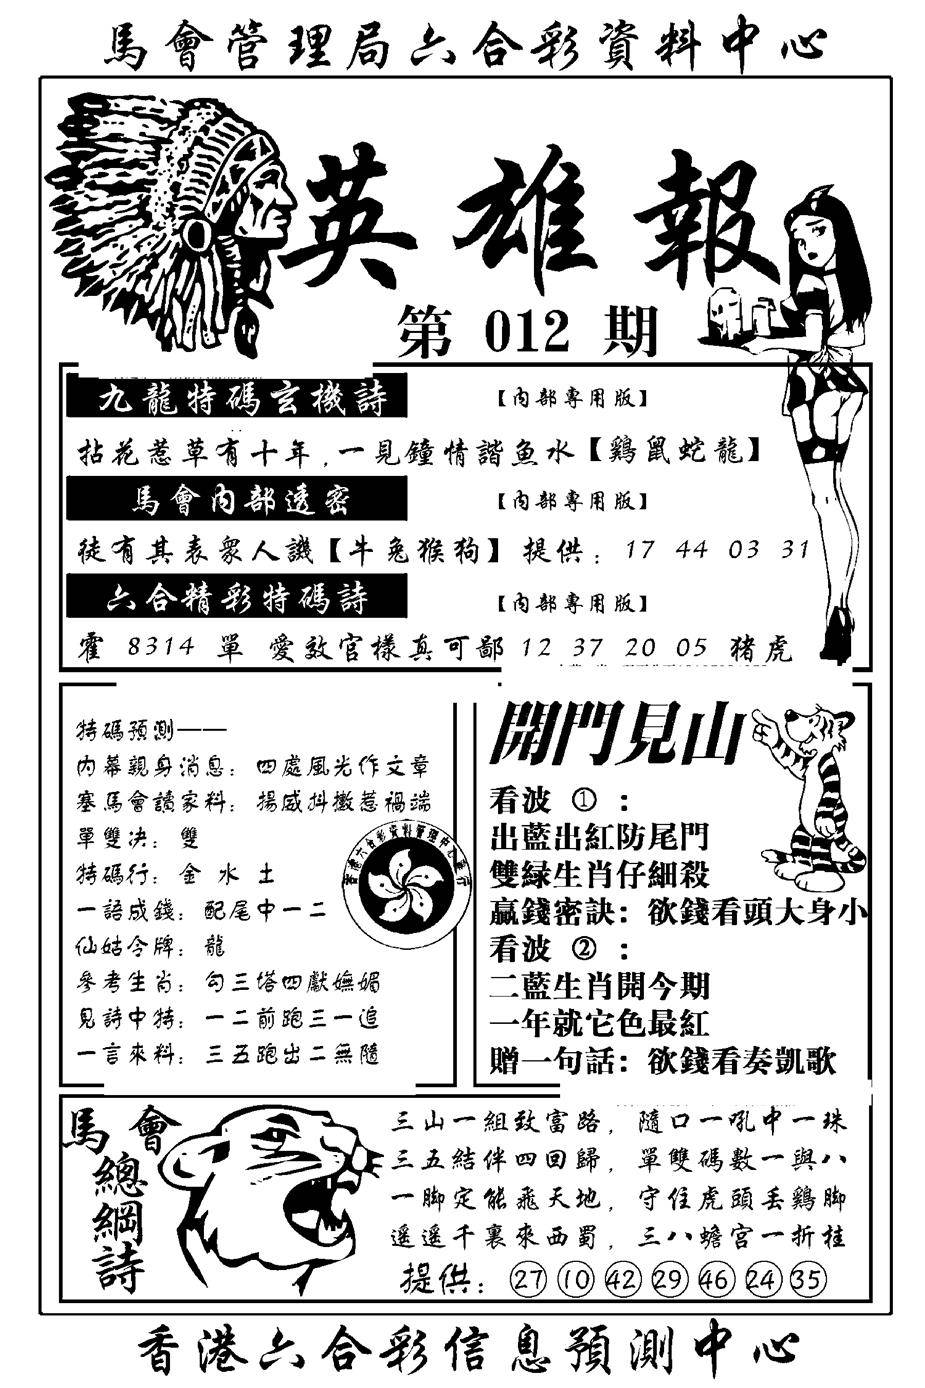 馬會管理局六合彩資料中心
英雄報
第 012 期
九龍特碼玄機詩 【內部專用版】
拈花惹草有十年,一見鐘情諧魚水【鷄鼠蛇龍】
馬會內部透密 【內部專用版】
徒有其表眾人譏【牛兔猴狗】 提供: 17 44 03 31
六合精彩特碼詩 【內部專用版】
霍 8314 單 愛效官樣真可鄙 12 37 20 05 猪虎
特碼預測——
內幕親身消息: 四處風光作文章
塞馬會讀家料: 揚威抖擻惹禍端
單雙决: 雙
特碼行: 金 水 土
一語成錢: 配尾中一二
仙姑令牌: 龍
參考生肖: 勾三塔四獻嫵媚
見詩中特: 一二前跑三一追
一言來料: 三五跑出二無隨
開門見山
看波 ① :
出藍出紅防尾門
雙緑生肖仔細殺
贏錢密訣: 欲錢看頭大身小
看波 ② :
二藍生肖開今期
一年就它色最紅
贈一句話: 欲錢看奏凱歌
馬會總綱詩
三山一組致富路, 隨口一吼中一珠
三五結伴四回歸, 單雙碼數一與八
一脚定能飛天地, 守住虎頭丢鷄脚
遥遥千裏來西蜀, 三八蟾宮一折桂
提供: 27 10 42 29 46 24 35
香港六合彩信息預測中心